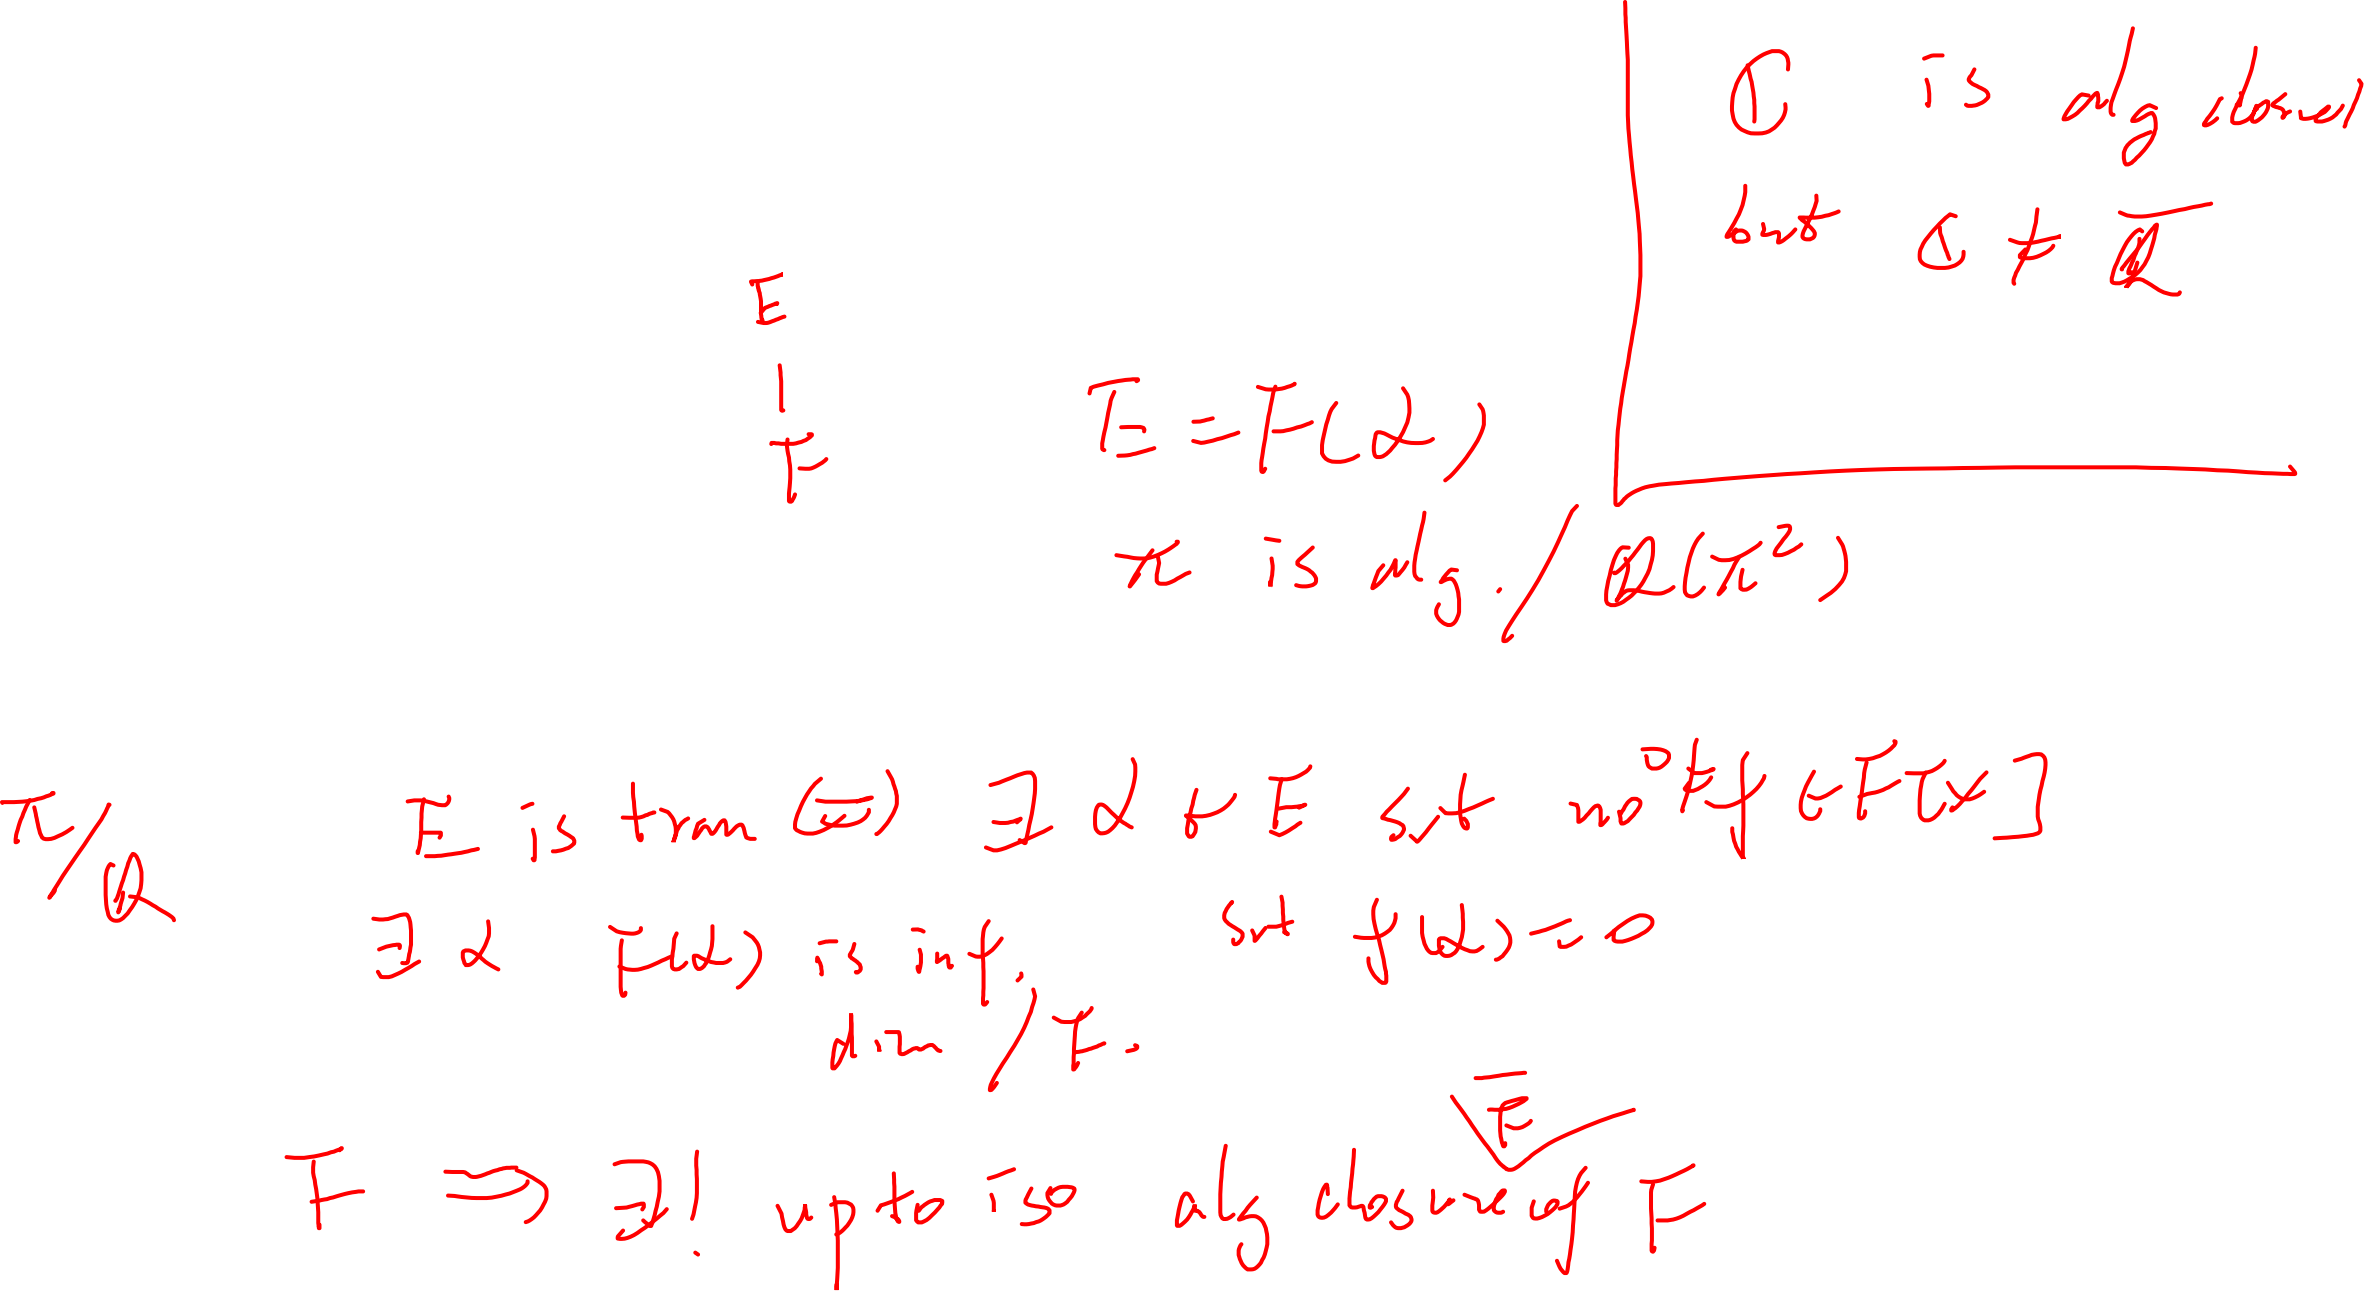 ℂ is alg closed
but ℂ ≠ \overline{ℚ}
E
|
F
E = F(α)
π is alg. / ℚ(π²)
π/ℚ
E is tran ⇔ ∃ α ∈ E s.t. no 0 ≠ f ∈ F[x]
s.t. f(α) = 0
∃ α F(α) is inf.
dim / F.
\overline{F}
F ⇒ ∃! up to iso alg closure of F